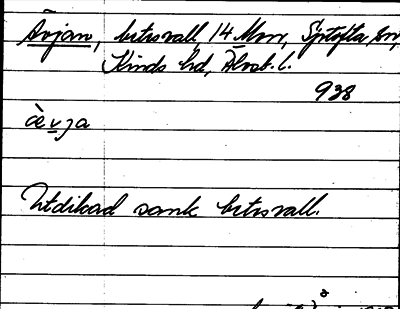 Ävjan, betesvall, 14 Mon, Toftefta sn,
Kinds hd, Älvsb. l.
938
ævja
Utdikad sank betesvall.